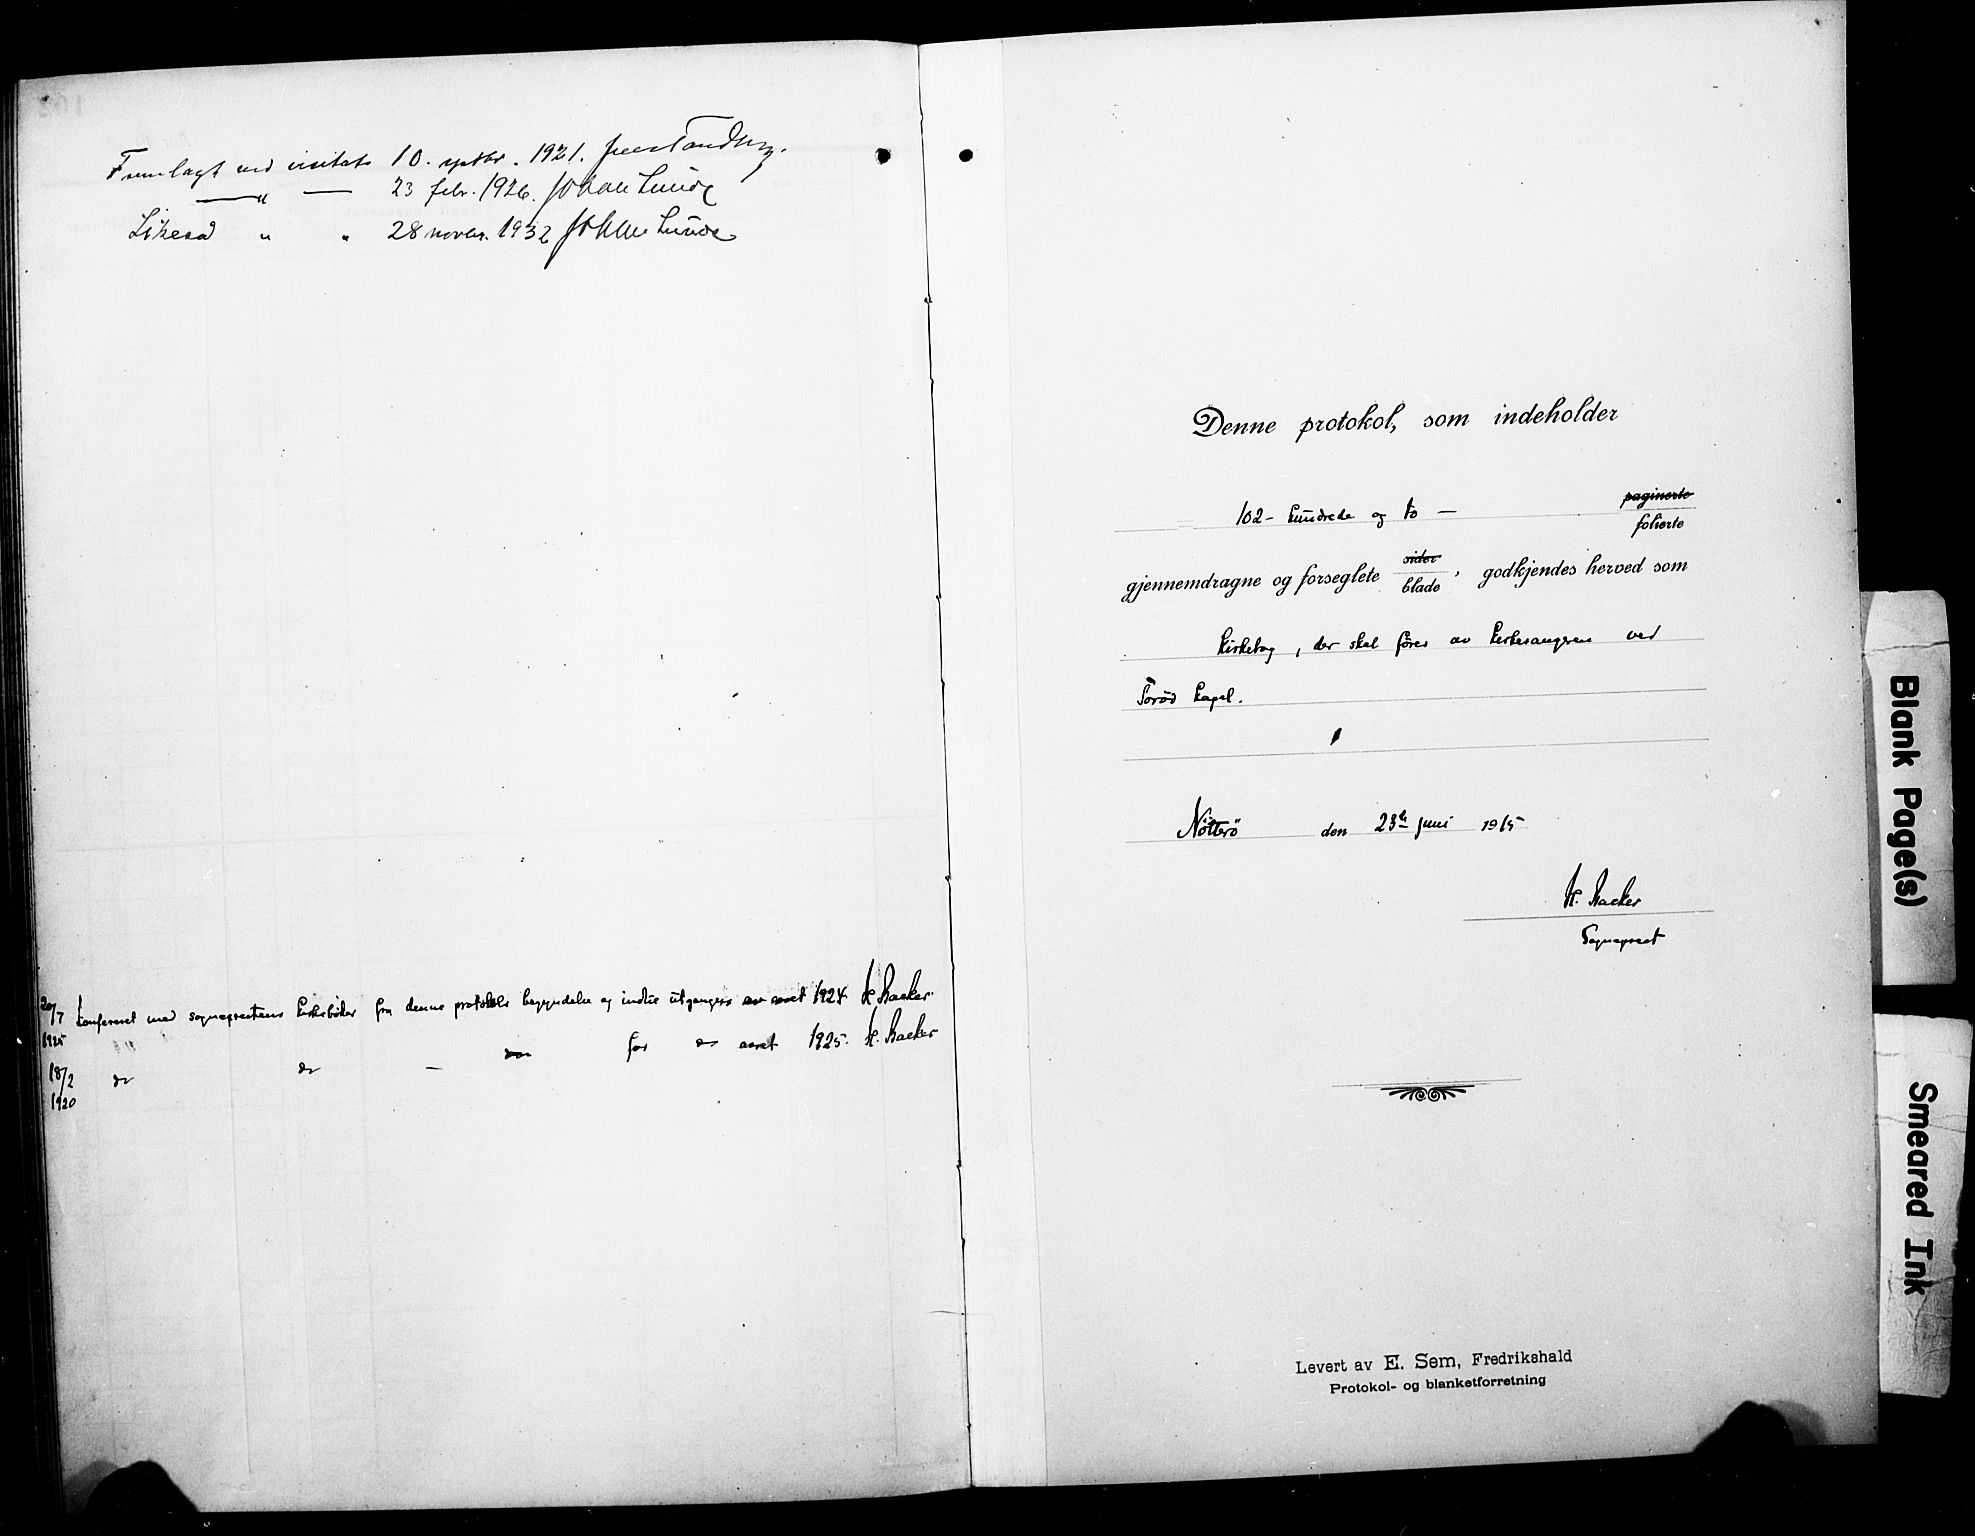 Fremlagt ved visitats 10. septbr. 1921. Jens Tandberg.
—〃— 23 febr. 1926. Johan Lunde
Likesaa 〃 〃 28 novbr. 1932 Johan Lunde
20/7 1925 Konfereret med sogneprestens kirkebøker fra denne protokols begyndelse og indtil utgangen av aaret 1924 H. Backer.
18/2 do do — do for do aaret 1925. H. Backer
1920
Denne protokol, som indeholder
102 – hundrede og to — paginerte
folierte
gjennemdragne og forseglete sider
blade, godkjendes herved som
kirkebog, der skal føres av kirkesangeren ved
Torød kapel.
Nötterö den 23de juni 1915
H. Backer
Sogneprest
Levert av E. Sem, Fredrikshald
Protokol- og blanketforretning
Blank Page(s)
Smeared Ink